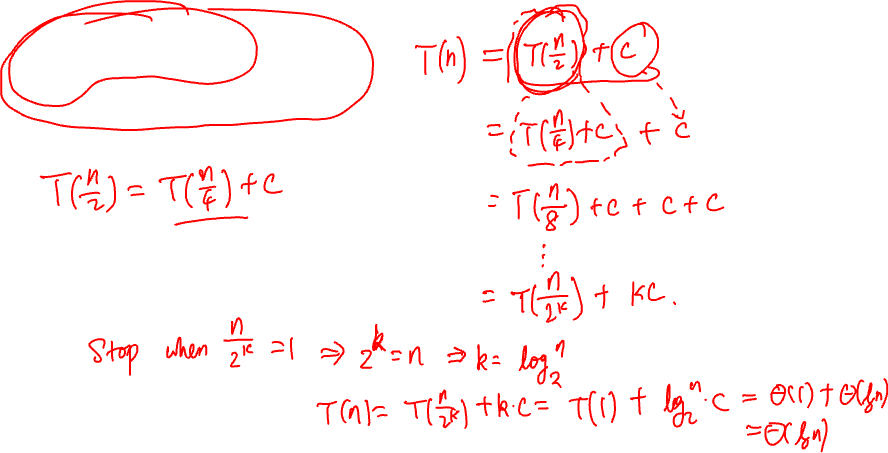 T(n) = T(n/2) + c
= (T(n/4) + c) + c
T(n/2) = T(n/4) + c
= T(n/8) + c + c + c
⋮
= T(n/2^k) + kc.
Stop when n/2^k = 1 ⇒ 2^k = n ⇒ k = log_2^n
T(n) = T(n/2^k) + k·c = T(1) + log_2^n · c = Θ(1) + Θ(lg n)
= Θ(lg n)